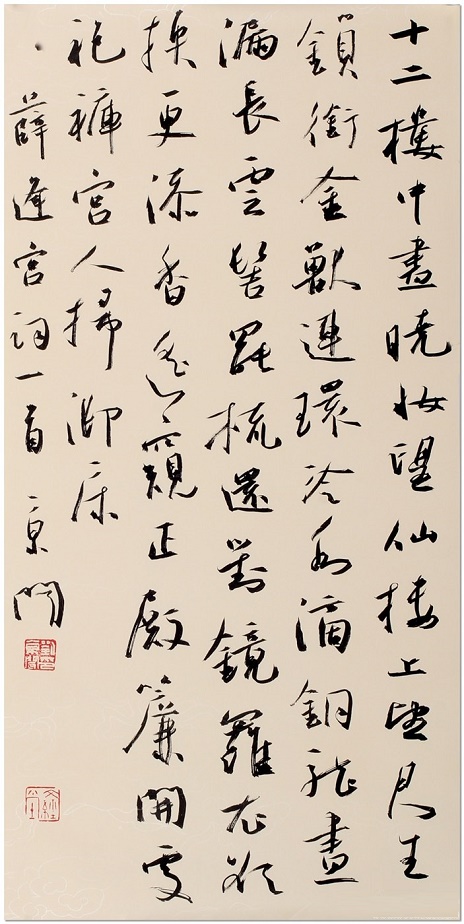 十二樓中盡曉妝望仙樓上望君王
鎖銜金獸連環冷水滴銅龍晝
漏長雲髻罷梳還對鏡羅衣欲
換更添香遙窺正殿簾開處
袍褲宮人掃御床
薛逢宮詞一首 京聞